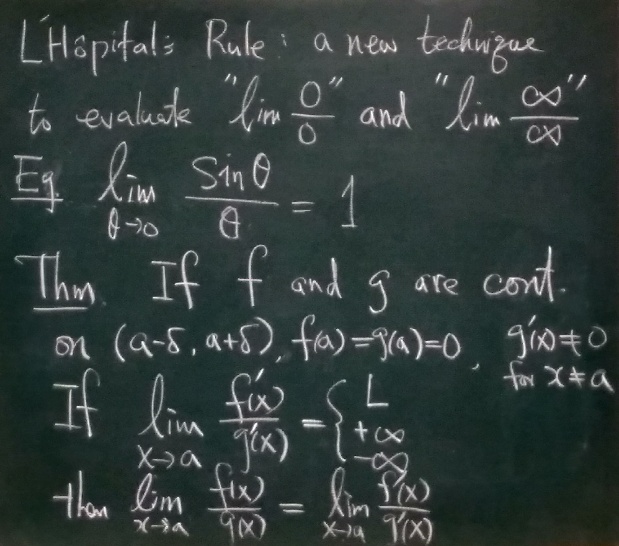 L'Hôpital's Rule: a new technique
to evaluate "lim 0/0" and "lim ∞/∞"
Eg. lim θ→0 Sinθ/θ = 1
Thm. If f and g are cont.
on (a-δ, a+δ), f(a)=g(a)=0, g'(x)≠0 for x≠a
If lim x→a f'(x)/g'(x) = { L +∞ -∞
then lim x→a f(x)/g(x) = lim x→a f'(x)/g'(x)